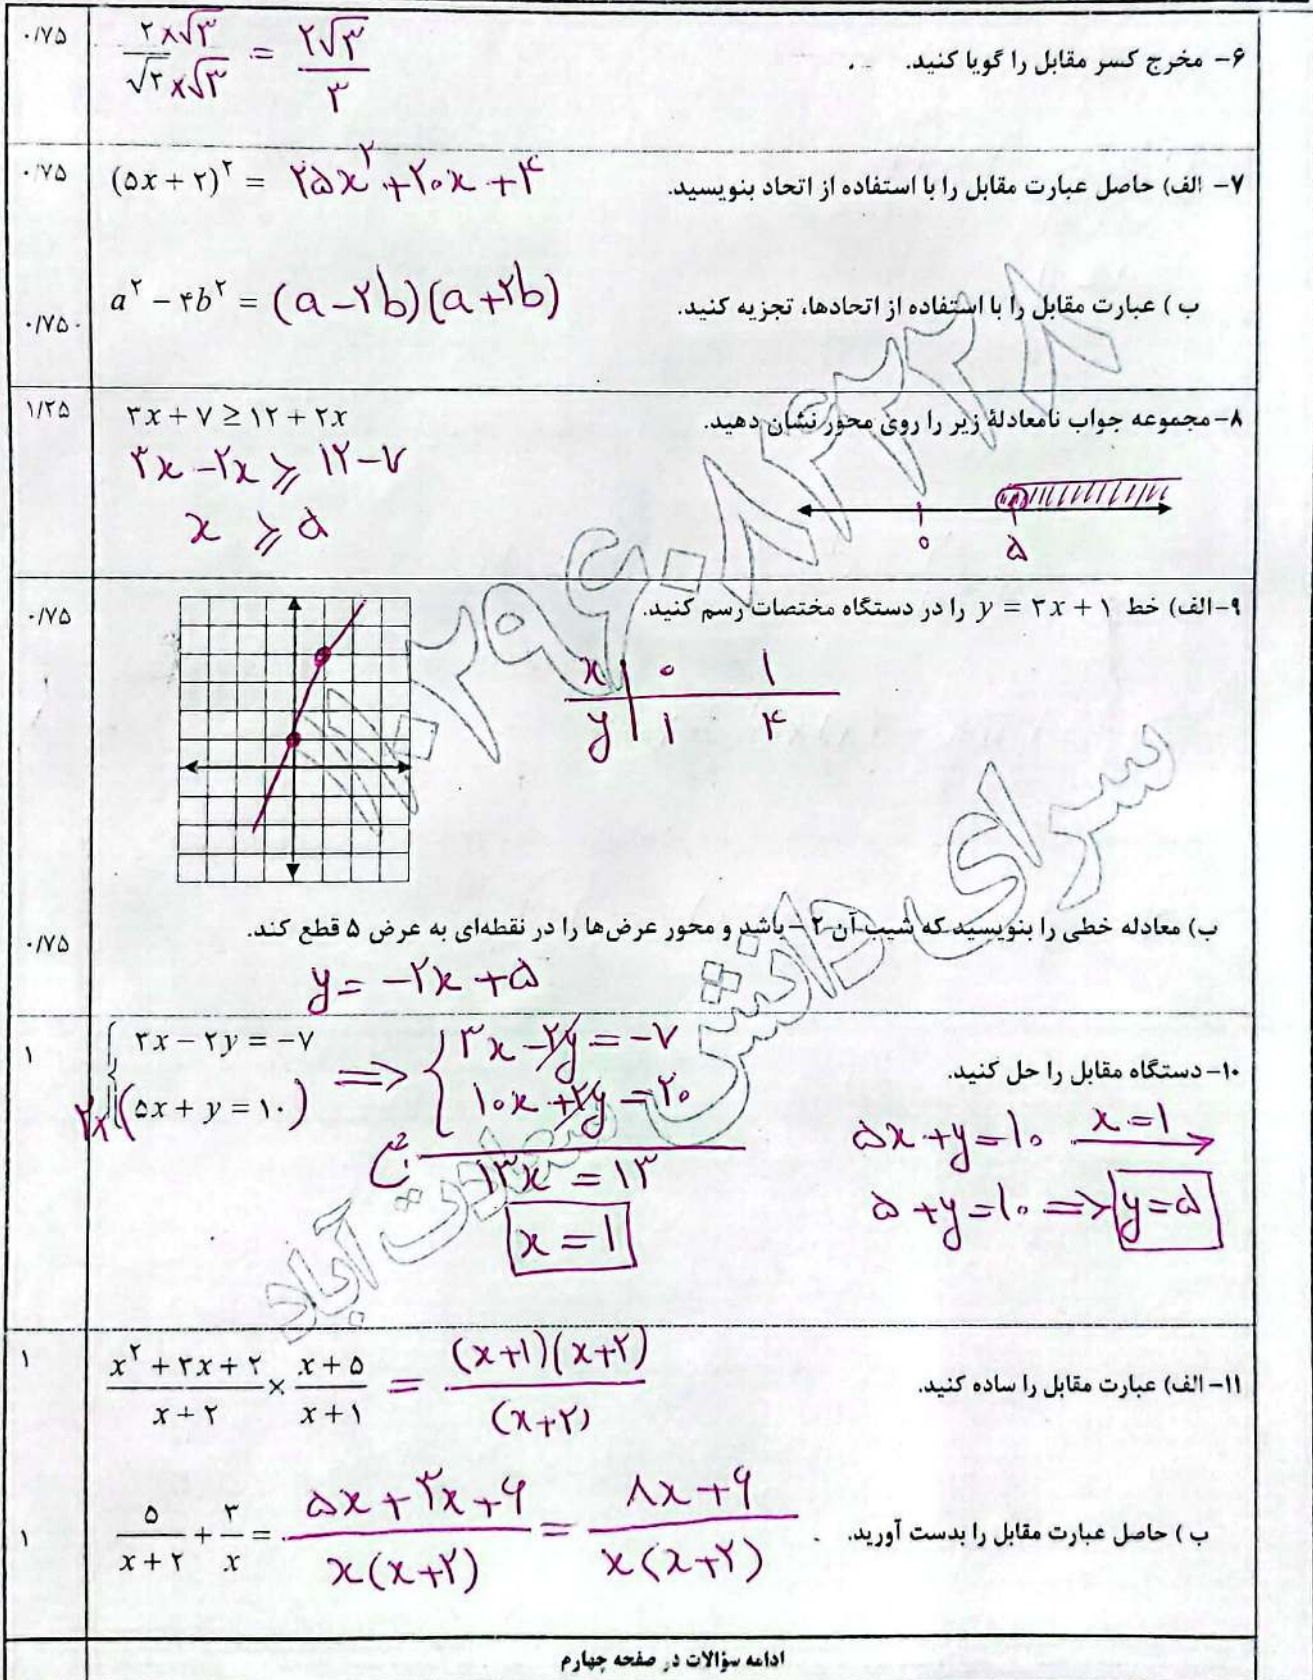 ۰/۷۵
۶- مخرج کسر مقابل را گویا کنید.
۲×√۳ / √۳×√۳ = ۲√۳ / ۳
۰/۷۵
۷- الف) حاصل عبارت مقابل را با استفاده از اتحاد بنویسید.
(۵x + ۲)^۲ = ۲۵x^۲ + ۲۰x + ۴
ب ) عبارت مقابل را با استفاده از اتحادها، تجزیه کنید.
a^۲ − ۴b^۲ = (a − ۲b)(a + ۲b)
۰/۷۵
۱/۲۵
۸- مجموعه جواب نامعادلهٔ زیر را روی محور نشان دهید.
۳x + ۷ ≥ ۱۲ + ۲x
۳x − ۲x ≥ ۱۲ − ۷
x ≥ ۵
۰ ۵
۰/۷۵
۹-الف) خط y = ۳x + ۱ را در دستگاه مختصات رسم کنید.
x | ۰ ۱
y | ۱ ۴
ب) معادله خطی را بنویسید که شیب آن ۲- باشد و محور عرض‌ها را در نقطه‌ای به عرض ۵ قطع کند.
۰/۷۵
y = −۲x + ۵
۱
۱۰- دستگاه مقابل را حل کنید.
۳x − ۲y = −۷ ⟹ ۳x − ۲y = −۷
۲×(۵x + y = ۱۰) ۱۰x + ۲y = ۲۰
جمع ۱۳x = ۱۳
x = ۱
۵x + y = ۱۰ x = ۱
۵ + y = ۱۰ ⟹ y = ۵
۱
۱۱- الف) عبارت مقابل را ساده کنید.
x^۲ + ۳x + ۲ / x + ۲ × x + ۵ / x + ۱ = (x+۱)(x+۲) / (x+۲)
ب ) حاصل عبارت مقابل را بدست آورید.
۵ / x + ۲ + ۳ / x = ۵x + ۳x + ۶ / x(x+۲) = ۸x + ۶ / x(x+۲)
۱
ادامه سؤالات در صفحه چهارم
سرای دانش سعادت آباد